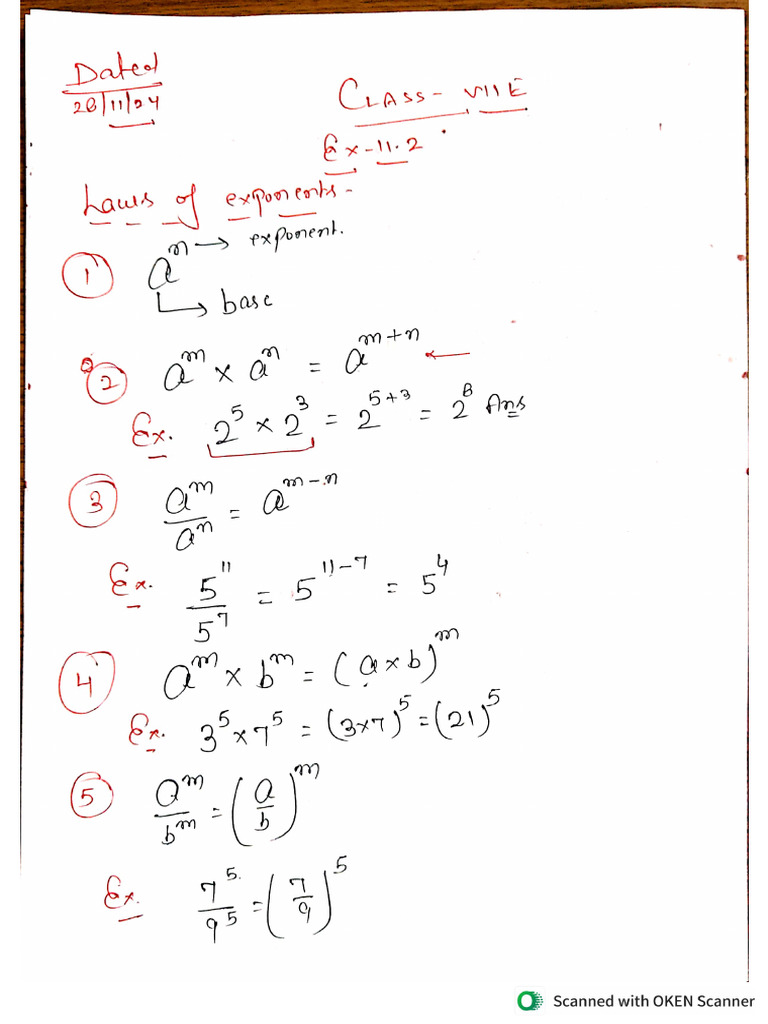 Dated
28/11/24
CLASS- VII E
Ex-11.2
Laws of exponents-
1 aⁿ → exponent.
↳ base
2 aᵐ × aⁿ = aᵐ⁺ⁿ ←
Ex. 2⁵ × 2³ = 2⁵⁺³ = 2⁸ Ans
3 aᵐ/aⁿ = aᵐ⁻ⁿ
Ex. 5¹¹/5⁷ = 5¹¹⁻⁷ = 5⁴
4 aᵐ × bᵐ = (a×b)ᵐ
Ex. 3⁵×7⁵ = (3×7)⁵ = (21)⁵
5 aᵐ/bᵐ = (a/b)ᵐ
Ex. 7⁵/9⁵ = (7/9)⁵
Scanned with OKEN Scanner